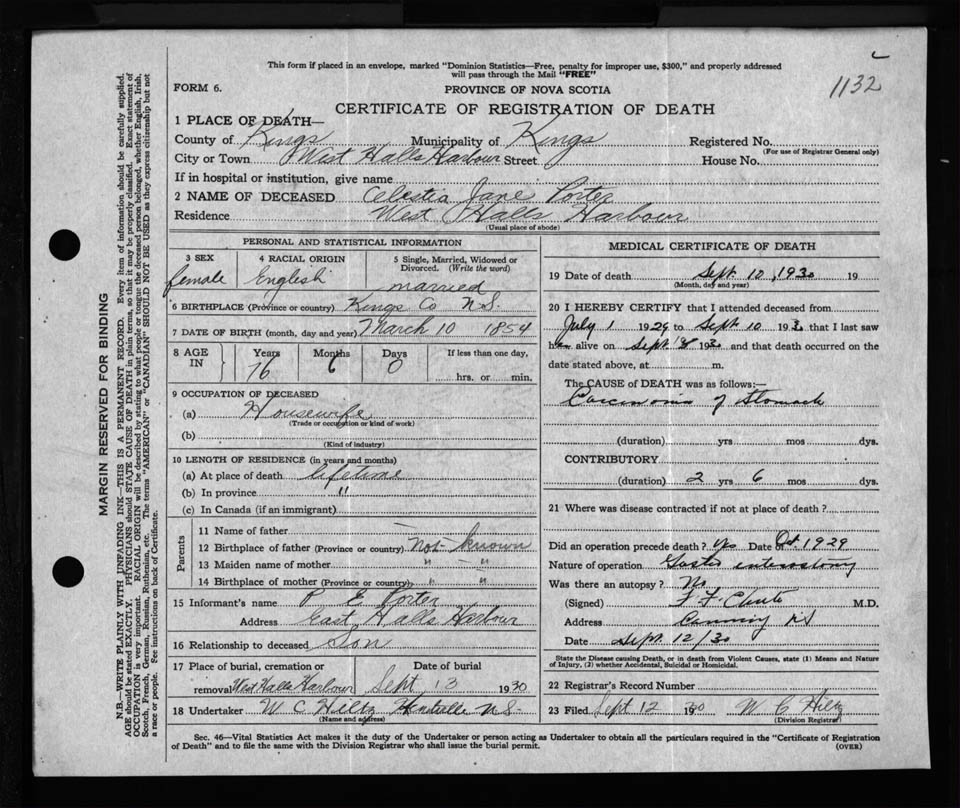 This form if placed in an envelope, marked "Dominion Statistics—Free, penalty for improper use, $300," and properly addressed
will pass through the Mail "FREE"
1132
FORM 6.
PROVINCE OF NOVA SCOTIA
CERTIFICATE OF REGISTRATION OF DEATH
1 PLACE OF DEATH—
County of Kings Municipality of Kings Registered No.
(For use of Registrar General only)
City or Town West Halls Harbour Street House No.
If in hospital or institution, give name
2 NAME OF DECEASED Celestia Jane Porter
Residence West Halls Harbour
(Usual place of abode)
PERSONAL AND STATISTICAL INFORMATION
3 SEX 4 RACIAL ORIGIN 5 Single, Married, Widowed or
Divorced. (Write the word)
female English married
6 BIRTHPLACE (Province or country) Kings Co N.S.
7 DATE OF BIRTH (month, day and year) March 10 1854
8 AGE IN Years Months Days If less than one day,
76 6 0 hrs. or min.
9 OCCUPATION OF DECEASED
(a) Housewife
(Trade or occupation or kind of work)
(b)
(Kind of industry)
10 LENGTH OF RESIDENCE (in years and months)
(a) At place of death lifetime
(b) In province "
(c) In Canada (if an immigrant)
Parents
11 Name of father —
12 Birthplace of father (Province or country) Not known
13 Maiden name of mother " "
14 Birthplace of mother (Province or country) " "
15 Informant's name P E Porter
Address East Halls Harbour
16 Relationship to deceased Son
17 Place of burial, cremation or Date of burial
removal West Halls Harbour Sept 13 1930
18 Undertaker W C Hiltz N.S.
(Name and address)
MEDICAL CERTIFICATE OF DEATH
19 Date of death Sept. 10, 1930 19
(Month, day and year)
20 I HEREBY CERTIFY that I attended deceased from
July 1 1929 to Sept. 10 1930 that I last saw
her alive on Sept 8 1930 and that death occurred on the
date stated above, at m.
The CAUSE OF DEATH was as follows:—
Carcinoma of Stomach
(duration) yrs mos dys.
CONTRIBUTORY
(duration) 2 yrs 6 mos dys.
21 Where was disease contracted if not at place of death?
Did an operation precede death? yes Date of Oct. 1929
Nature of operation Gastro enterostomy
Was there an autopsy? No
(Signed) F. F. Chute M.D.
Address Canning N S
Date Sept. 12/30
State the Disease causing Death, or in death from Violent Causes, state (1) Means and Nature
of Injury, (2) whether Accidental, Suicidal or Homicidal.
22 Registrar's Record Number
23 Filed Sept 12 1930 W C Hiltz
(Division Registrar)
Sec. 46—Vital Statistics Act makes it the duty of the Undertaker or person acting as Undertaker to obtain all the particulars required in the "Certificate of Registration
of Death" and to file the same with the Division Registrar who shall issue the burial permit.
(OVER)
MARGIN RESERVED FOR BINDING
N.B.—WRITE PLAINLY WITH UNFADING INK—THIS IS A PERMANENT RECORD. Every item of information should be carefully supplied.
AGE should be stated EXACTLY. PHYSICIANS should STATE CAUSE OF DEATH in plain terms, so that it may be properly classified. Exact statement of
OCCUPATION is very important. RACIAL ORIGIN will be described by stating to what people or tongue the deceased person belonged, whether English, Irish,
Scotch, French, German, Russian, Ruthenian, etc. The terms "AMERICAN" or "CANADIAN" SHOULD NOT BE USED as they express citizenship but not
a race or people. See instructions on back of Certificate.